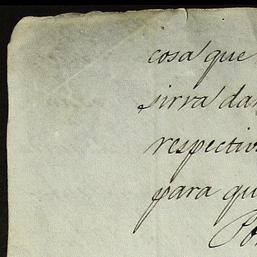 cosa que
sirva da
respectiv
para qu
Po